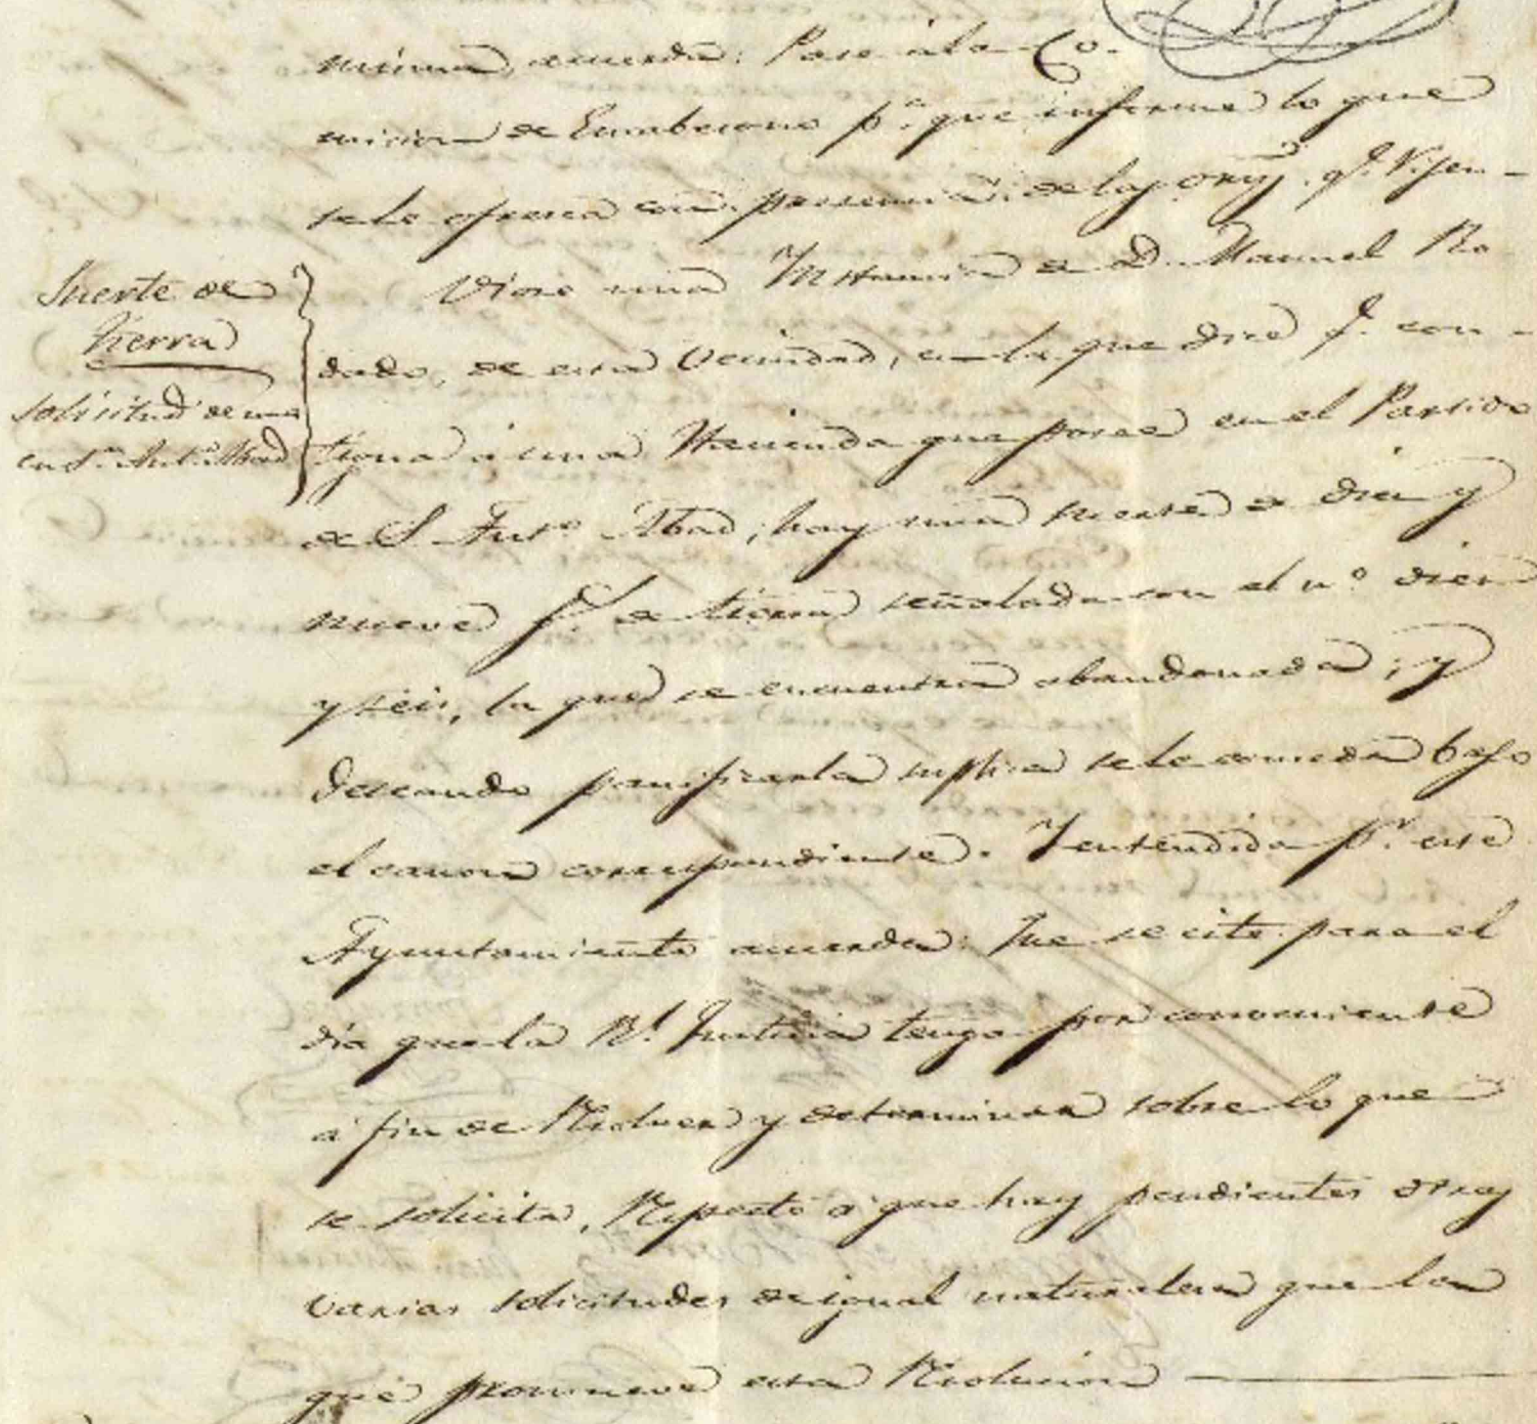 misma, acuerda: Pase á la Co-
micion de Ensabesono pª. que informe lo que
se le ofresca con presencia de las orns. qe. Vijen-
Suerte de
tierra
solicitud de una
en Sn. Antº. Abad
Viose una Instancia de D. Manuel Ro
dado, de esta Vecindad, en la que dice qe. con-
tigua á una Hacienda que posee en el Partido
de S. Antº. Abad, hay una suerte de diez y
nueve fs. de tierra señalada con el nº diez
y seis, la que se encuentra abandonada; y
deseando panificarla suplica se le conceda bajo
el canon correspondiente. Y entendida pr. este
Ayuntamiento acuerda: Que se cite para el
dia que la Rl. Justicia tenga por conveniente
á fin de Resolver y determinar sobre lo que
se solicita, Respecto á que hay pendientes otras
varias solicitudes de igual naturaleza que la
que promueve esta Resolucion